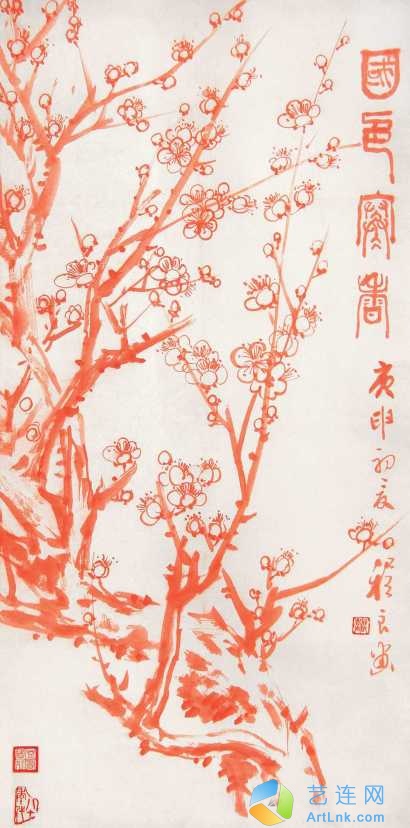 國色寒香
庚申初夏
艺连网
ArtLnk.com